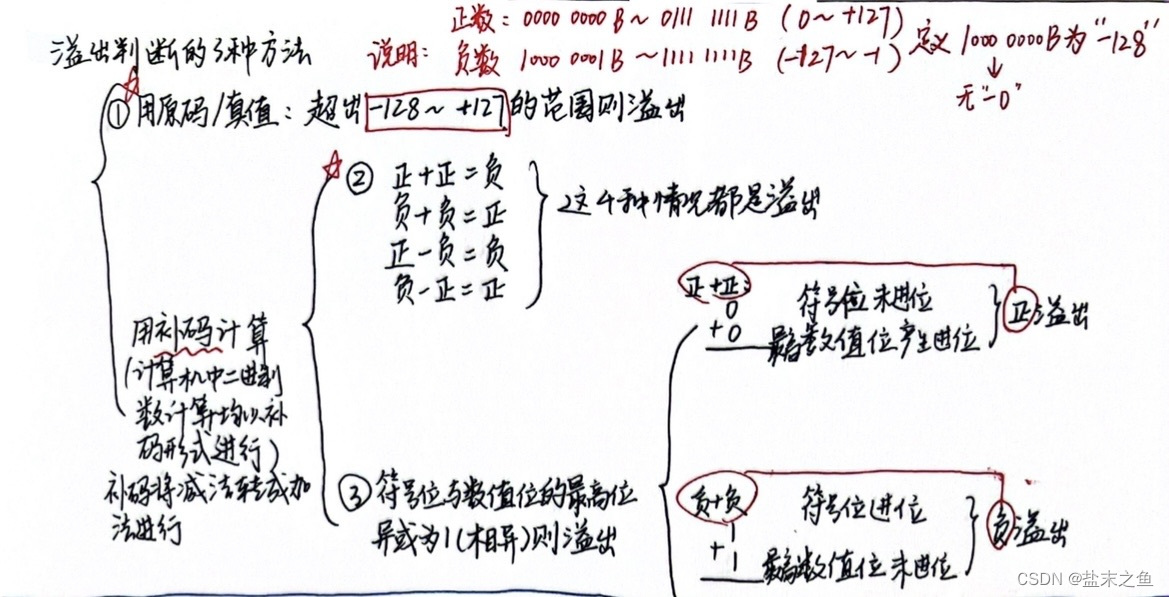 正数：0000 0000B～0111 1111B（0～+127）
溢出判断的3种方法
说明：负数 1000 0001B～1111 1111B（-127～-1）
定义 1000 0000B为"-128"
↓
无"-0"
①用原码/真值：超出-128～+127的范围则溢出
② 正+正=负
负+负=正
正-负=负
负-正=正
这4种情况都是溢出
用补码计算
(计算机中二进制
数计算均以补
码形式进行)
补码将减法转成加
法进行
③符号位与数值位的最高位
异或为1(相异)则溢出
正+正:
0
+0
符号位未进位
最高数值位产生进位
正溢出
负+负
1
+1
符号位进位
最高数值位未进位
负溢出
CSDN @盐末之鱼